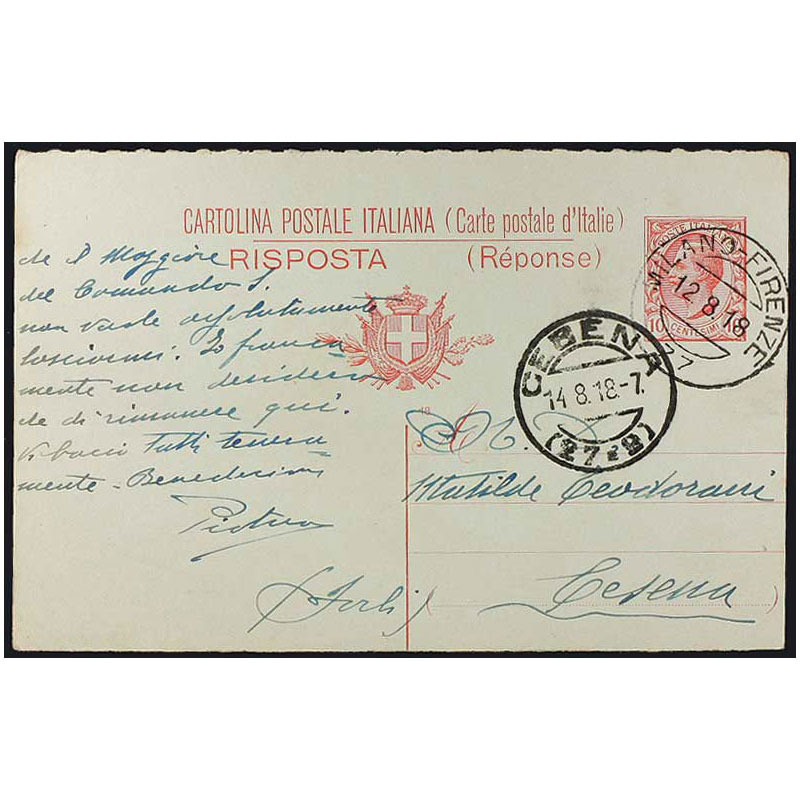 CARTOLINA POSTALE ITALIANA (Carte postale d'Italie)
RISPOSTA (Réponse)
POSTE ITALIANE
10 CENTESIMI 10
MILANO-FIRENZE
12 8 18
CESENA
14 8.18-7.
(27 e 2)
Maggiore
del Comando S.
non vuole assolutamente
lasciarmi. Io franca
mente non desidero
di rimanere qui.
Vi baci tutti tenera
mente - Benedicimi
Pietro
Matilde Teodorani
Cesena
(Forlì)